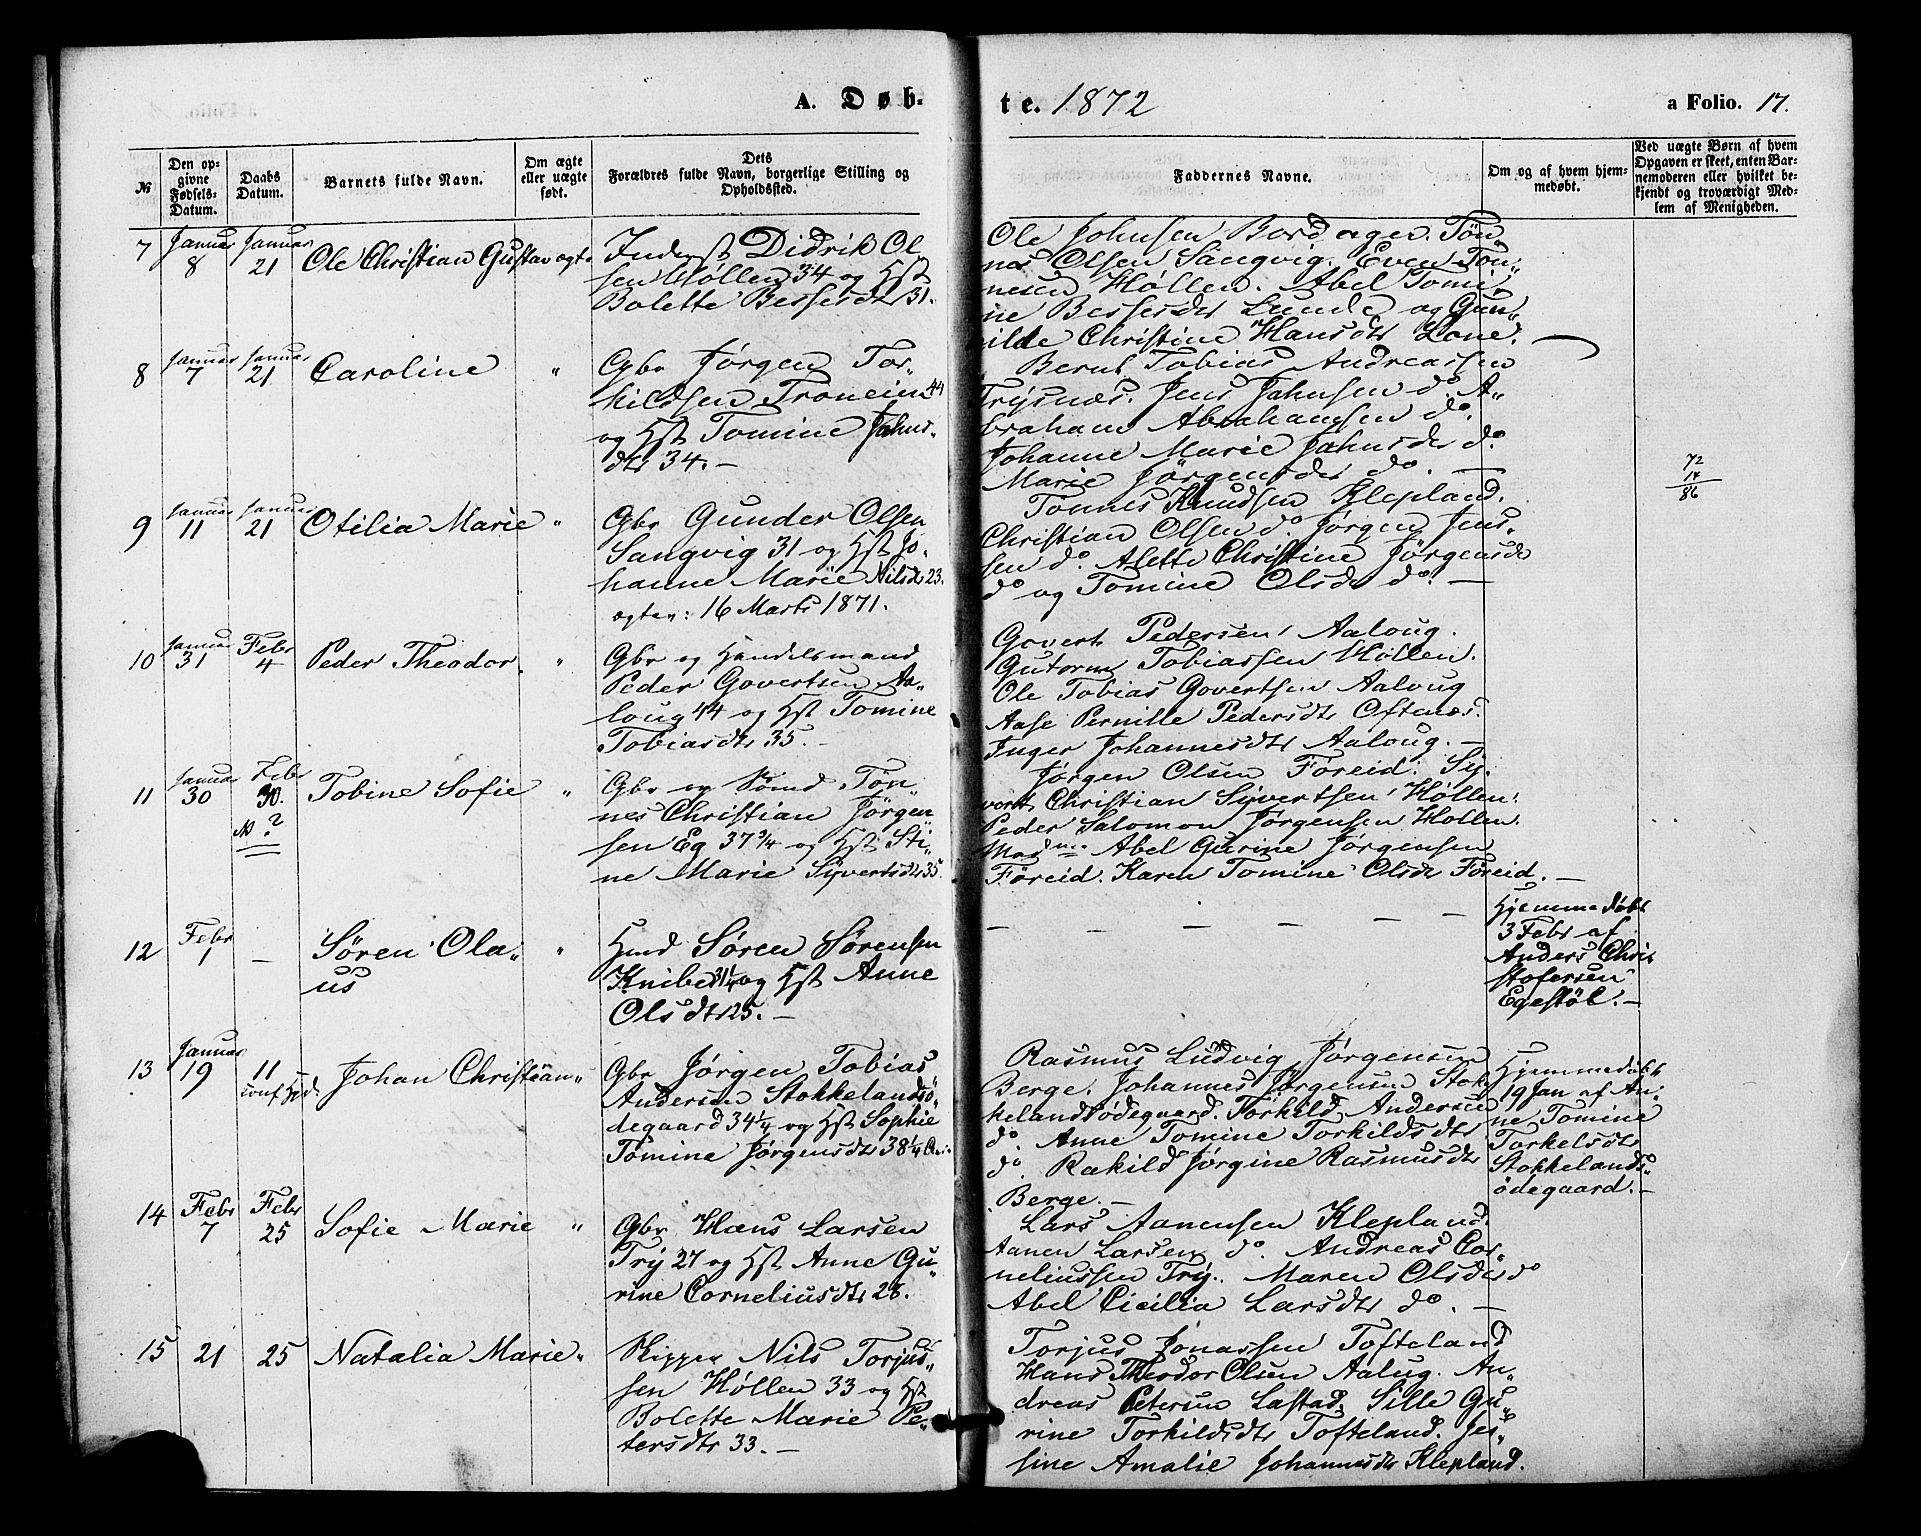 A. Døb-
te. 1872
a Folio. 17.
№
Den op-
givne
Fødsels-
Datum.
Daabs
Datum.
Barnets fulde Navn.
Om ægte
eller uægte
født.
Dets
Forældres fulde Navn, borgerlige Stilling og
Opholdssted.
Faddernes Navne.
Om og af hvem hjem-
medøbt.
Ved uægte Børn af hvem
Opgaven er skeet, enten Bar-
nemoderen eller hvilket be-
kjendt og troværdigt Med-
lem af Menigheden.
7
Januar
8
Januar
21
Ole Christian Gustav ægte
Inderst Didrik Ol
sen Høllen 34 og Hst
Bolette Bessesdtr 31.
Ole Johnsen Tøn
nes Olsen Sangvig. Even Tøn„
nesen Høllen. Abel Tomi„
ne Bessesdtr Lunde og Gun„
nilde Christine Hansdtr Lone.
8
Januar
7
Januar
21
Caroline "
Gbr Jørgen Tor„
kildsen Troneim 44
og Hst Tomine Jahns„
dtr 34. —
Bernt Tobias Andreassen
Trysnæs. Jens Jahnsen do. A„
braham Abrahamsen do.
Johanne Marie Jahnsdtr do.
Marie Jörgensdtr do. —
72
14
86
9
Januar
11
Januar
21
Otilia Marie "
Gbr Gunder Olsen
Sangvig 31 og Hst Jo„
hanne Marie Nilsdtr 23.
ægtev: 16 Marts 1871.
Tønnes Knudsen Klepland.
Christian Olsen do Jørgen Jens„
sen do. Alette Christine Jörgensdtr
do og Tomine Olsdtr do. —
10
Januar
31
Febr
4
Peder Theodor. "
Gbr og Handelsmand
Peder Govertsen Aa„
loug 44 og Hst Tomine
Tobiasdtr 35. —
Govert Pedersen Aaloug.
Gutorm Tobiassen Høllen.
Ole Tobias Govertsen Aaloug
Aase Pernille Pedersdtr Oftenæs.
Inger Johannesdtr Aaloug. —
11
Januar
30
Febr
30.
№ ?
Tobine Sofie "
Gbr og Sømd Tøn„
nes Christian Jörgen
sen Eg 37 3/4 og Hst Sti„
ne Marie Syvertsdtr 35.
Jørgen Olsen Føreid. Sy„
vert Christian Syvertsen Høllen.
Peder Salomon Jörgensen Høllen.
Madme Abel Gurine Jörgensen
Føreid. Karen Tomine Olsdtr Føreid. —
12
Febr
1
—
Søren Ola„
us
"
Hmd Søren Sørensen
Knibe 31 1/4 og Hst Anne
Olsdtr 25. —
— — — — — — —
Hjemmedøbt
3 Febr af
Anders Chri
stofersen
Egestøl. —
13
Januar
19
11
conf Hjd.
Johan Christian "
Gbr Jørgen Tobias
Andersen Stokkelandsö„
degaard 34 1/4 og Hst Sophie
Tomine Jörgensdtr 38 1/4
Rasmus Ludvig Jørgensen
Berge. Johannes Jörgensen Stok
kelandsödegaard. Torkild Andersen
do. Anne Tomine Torkildsdtr
do. Rakild Jörgine Rasmusdtr
Berge. —
Hjemmedøbt
19 Jan af An„
ne Tomine
Torkelsdtr
Stokkelands„
ödegaard. —
14
Febr
7
Febr
25
Sofie Marie "
Gbr Hans Larsen
Try 27 og Hst Anne Gu„
rine Corneliusdtr 28.
Lars Aanensen Klepland.
Aanen Larsen do. Andreas Cor„
neliussen Try. Maren Olsdtr do
Abel Cicilia Larsdtr do. —
15
21
25
Natalia Marie "
Skipper Nils Torjus„
sen Høllen 33 og Hst
Bolette Marie Pe„
tersdtr 33. —
Torjus Jonassen Tofteland
Hans Theodor Olsen Aalug. An„
dreas Petersen Lastad. Sille Gu„
rine Torkildsdtr Tofteland. Jes„
sine Amalie Johannesdtr Klepland.